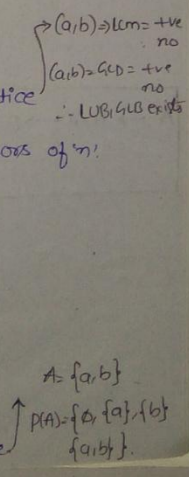 (a,b) ⇒ Lcm = +ve
no
(a,b) = GCD = +ve
no
tice
∴ LUB, GLB exists
ors of 'n'.
A = {a,b}
P(A) = {φ, {a}, {b}
{a,b}}.